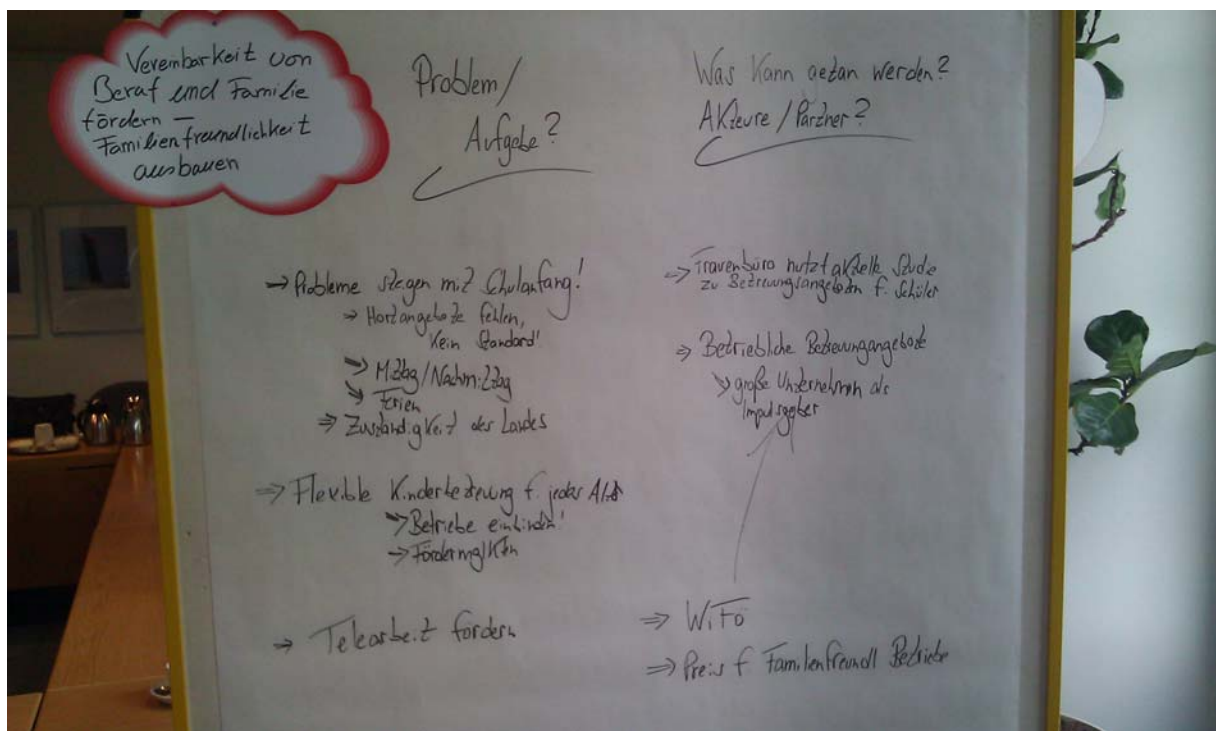 Vereinbarkeit von
Beruf und Familie
fördern –
Familienfreundlichkeit
ausbauen
Problem/
Aufgabe?
→ Probleme steigen mit Schulanfang!
→ Hortangebote fehlen,
kein Standard!
→ Mittag/Nachmittag
→ Ferien
⇒ Zuständigkeit des Landes
⇒ Flexible Kinderbetreuung f. jedes Alter
→ Betriebe einbinden!
→ Fördermglktn
→ Telearbeit fördern
Was kann getan werden?
Akteure/Partner?
⇒ Frauenbüro nutzt aktuelle Studie
zu Betreuungsangeboten f. Schüler
⇒ Betriebliche Betreuungangebote
→ große Unternehmen als
Impulsgeber
⇒ WiFö
⇒ Preis f Familienfreundl Betriebe